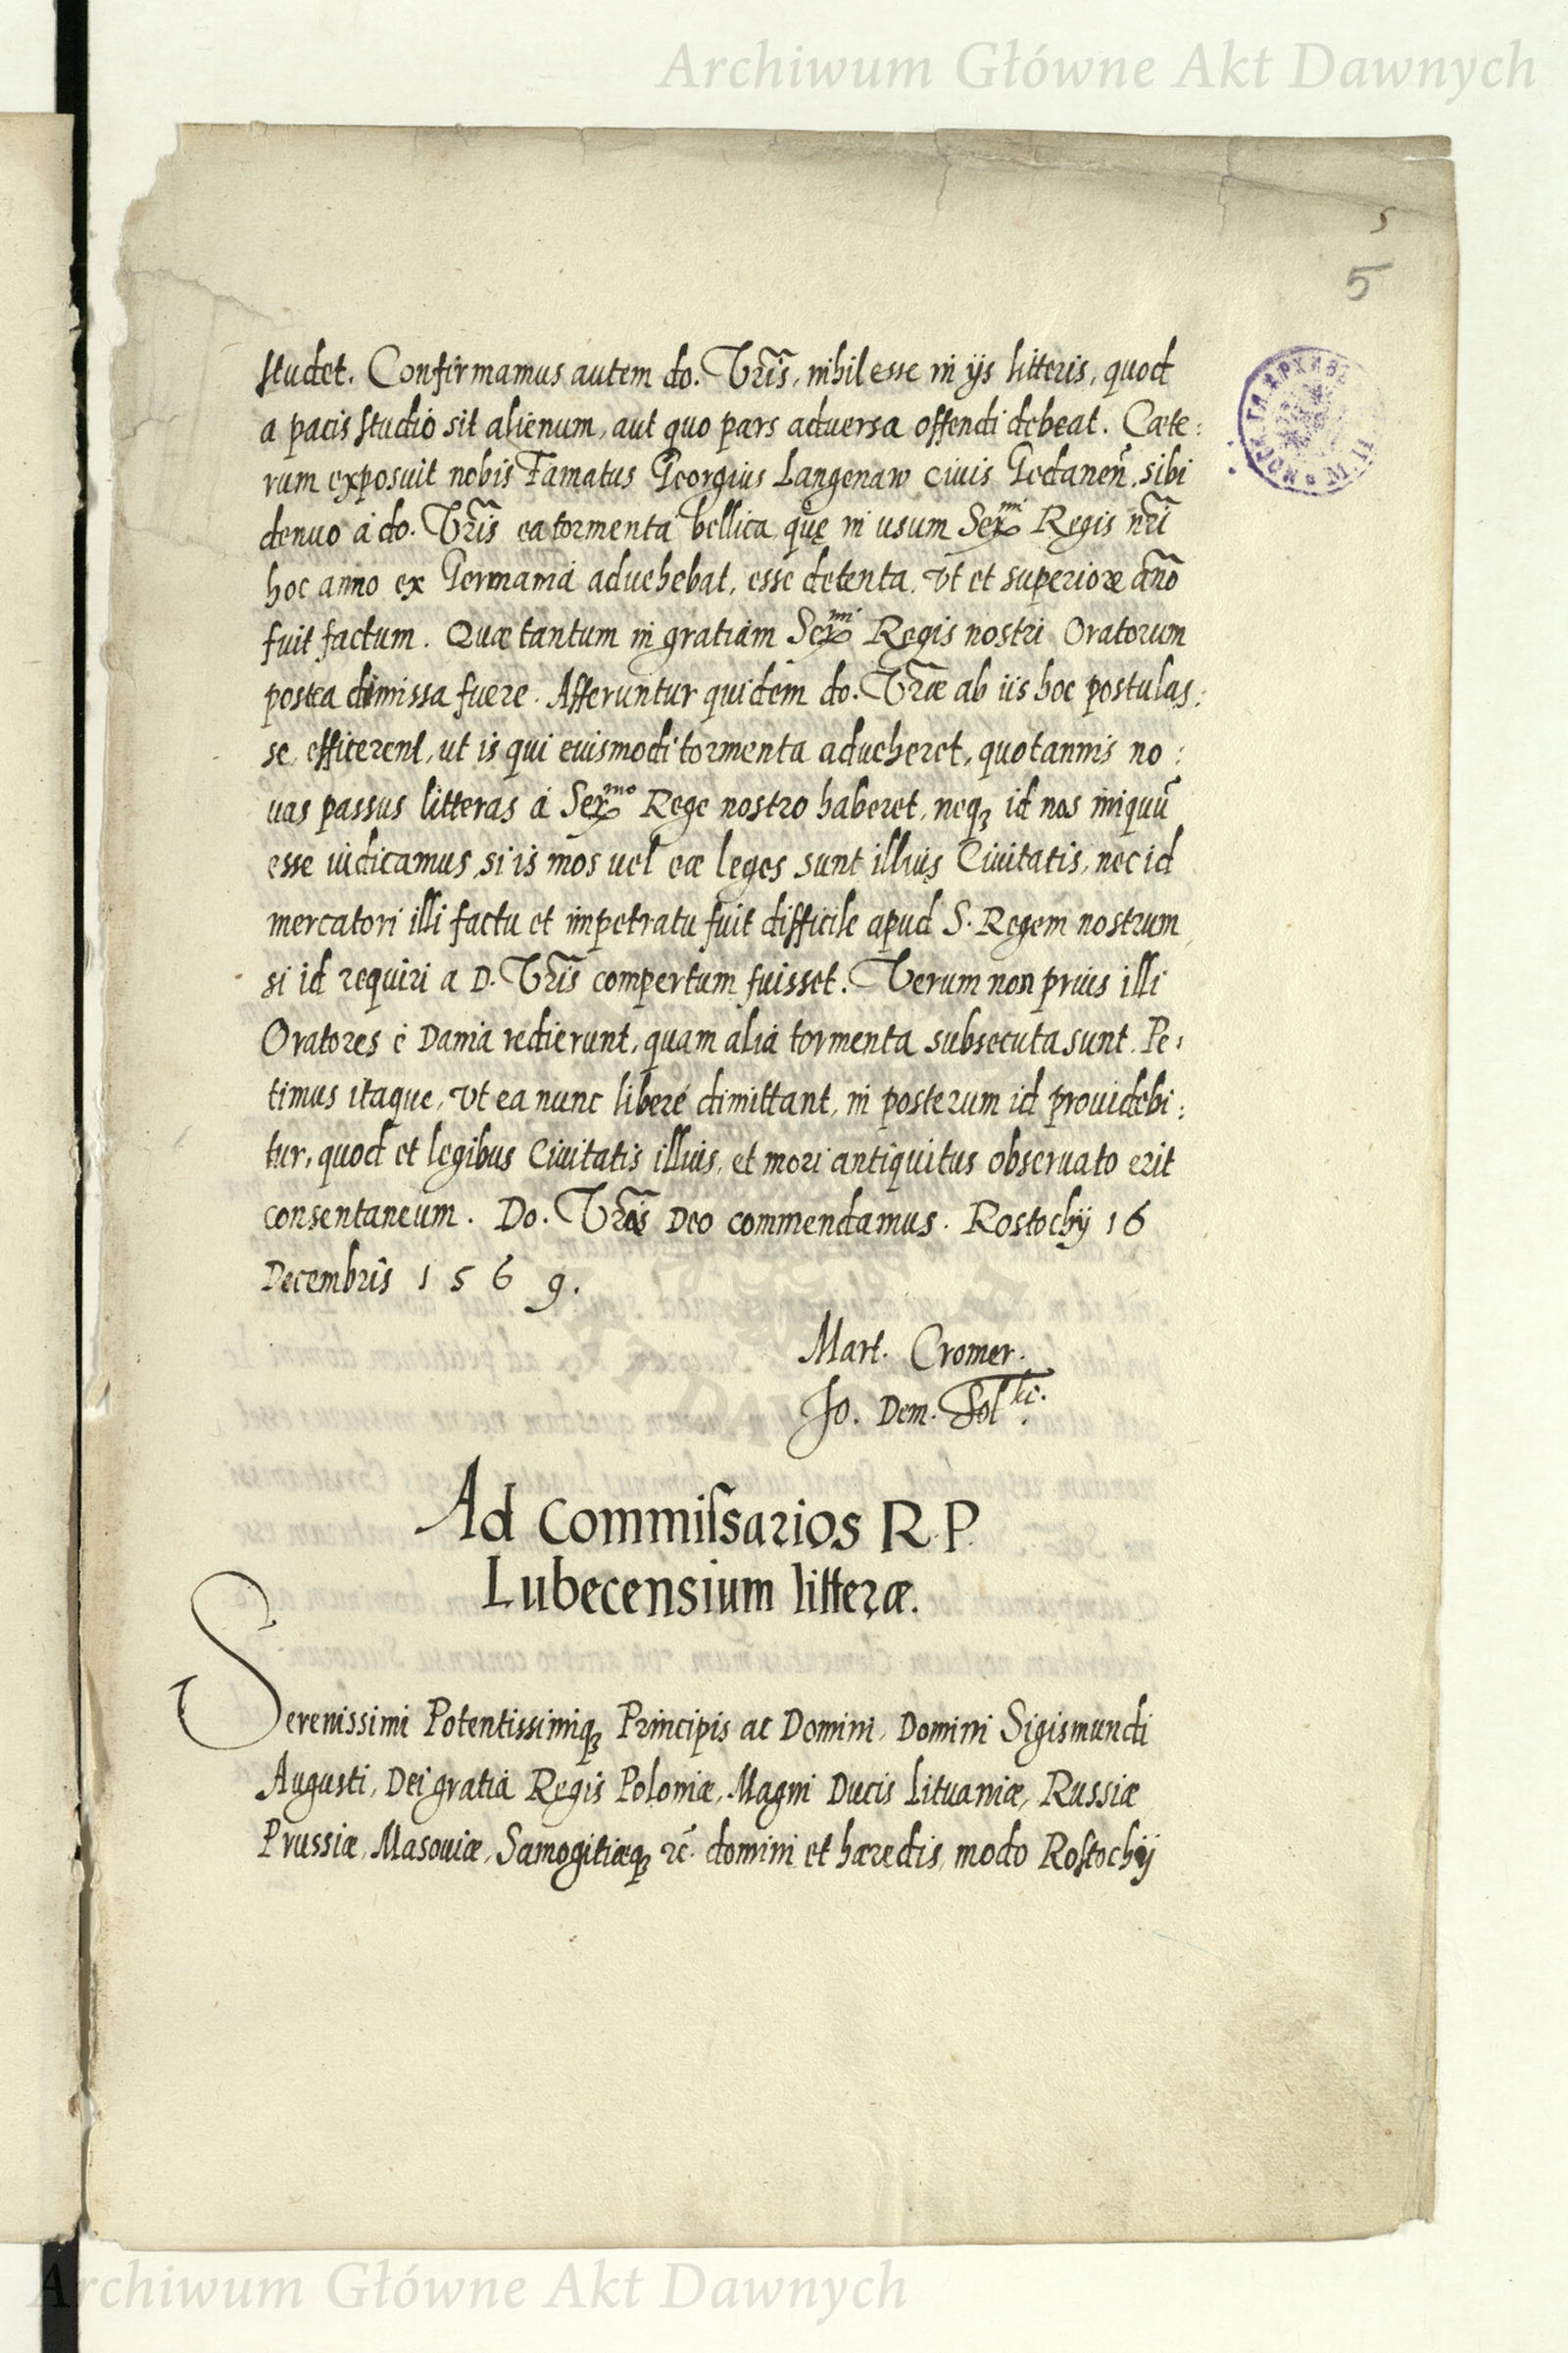 Archiwum Główne Akt Dawnych
5
5
studet. Confirmamus autem do. Vr̃is, nihil esse in ijs litteris, quod
a pacis studio sit alienum, aut quo pars adversa offendi debeat. Cæte:
rum exposuit nobis Famatus Georgius Langenaw civis Gedanen̄, sibi
denuo á do. Vr̃is ea tormenta bellica, quę in usum Serᵐⁱ Regis nr̃i
hoc anno ex Germaniá aduehebat, esse detenta, vt et superiore an̄o
fuit factum. Quæ tantum in gratiám Serᵐⁱ Regis nostri Oratorum
postea dimissa fuere. Afferuntur quidem do. Vr̃æ ab iis hoc postulas:
se, efficerent, ut is qui euismodi tormenta adueheret, quotannis no:
uas passus litteras á Serᵐᵒ Rege nostro haberet, neqꝫ id nos iniquū
esse iudicamus, si is mos uel eæ leges sunt illius Ciuitatis, nec id
mercatori illi factu et impetratu fuit difficile apud S. Regem nostrum,
si id requiri a D. Vr̃is compertum fuisset. Verum non prius illi
Oratores é Daniá redierunt, quam aliá tormenta subsecuta sunt. Pe:
timus itaque, vt ea nunc liberé dimittant, in posterum id prouidebi:
tur, quod et legibus Ciuitatis illius, et mori antiquitus obseruato erit
consentaneum. Do. Vr̃as Deo commendamus. Rostochij 16
Decembris 1569.
Mart. Cromer.
Jo. Dem. Solᵏᶜ.
Ad Commiſsarios R.P.
Lubecensium litteræ.
Serenissimi Potentissimiqꝫ Principis ac Domini, Domini Sigismundi
Augusti, Dei gratiá Regis Poloniæ, Magni Ducis Lituaniæ, Russiæ
Prussiæ, Masouiæ, Samogitiæqꝫ ꝛc̄. domini et hæredis, modo Rostochij
Archiwum Główne Akt Dawnych